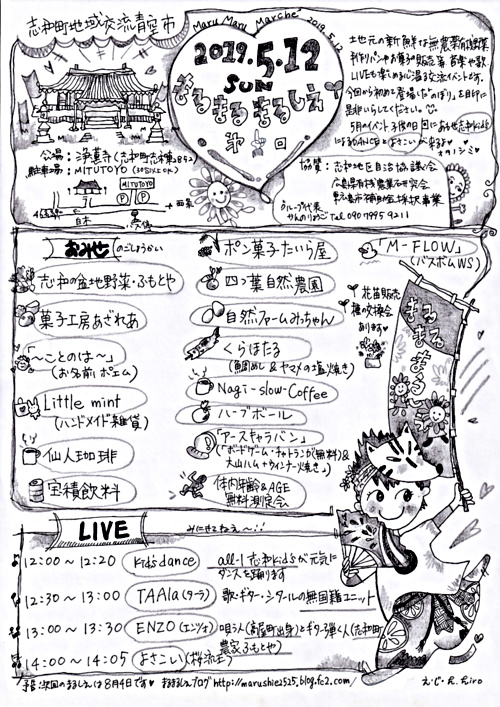 志和町地域交流青空市
Maru Maru Marche 2019.5.12
2019.5.12
SUN
まるまるまるしぇ
第回
土地元の新鮮な無農薬有機野菜
手作りパンやお菓子の販売等 音楽や歌、
LIVEも楽しめる心温まる交流イベントです。
今回から初めて登場した"のぼり"を目印に
是非いらしてください。
5月のイベント 子供の日
によるDANCEとよさこいが来るよ
会場：浄蓮寺(志和町志和堀
駐車場：MITUTOYO
MITUTOYO
P P
西条
協賛：志和地区自治協議会
グループ代表
Tel 090 7995 9211
おみせのごしょうかい
志和の盆地野菜・ふもとや
菓子工房あざれあ
「〜ことのは〜」
(お名前ポエム)
Little mint
(ハンドメイド雑貨)
仙人珈琲
宝積飲料
ポン菓子たいら屋
四つ葉自然農園
自然ファームみっちゃん
くらほたる
(鯛めし & ヤマメの塩焼き)
Nagi-slow-Coffee
ハーブボール
「アースキャラバン」
(「ボードゲーム・チャトランガ(無料)&
大山ハム+ウインナー焼き」)
体内年齢&AGE
無料測定会
「M-FLOW」
(バスボムWS)
花苗販売
種の交換会
あります
まるまるまるしぇ
LIVE
みにきてねぇ〜!!
12:00〜12:20 Kid's dance all-1 志和kid'sが元気に
ダンスを踊ります
12:30〜13:00 TAAla(ターラ) 歌・ギター・シタールの無国籍ユニット
13:00〜13:30 ENZO(エンヅォ) 唄う人(高屋町出身)とギター弾く人(志和町
農家ふもとや)
14:00〜14:05 よさこい(桜流王)
予告：次回のまるしぇは8月4日です♥ まるまるしぇブログ http://marushie2525.blog.fc2.com/
え・じ・R.R.hiro